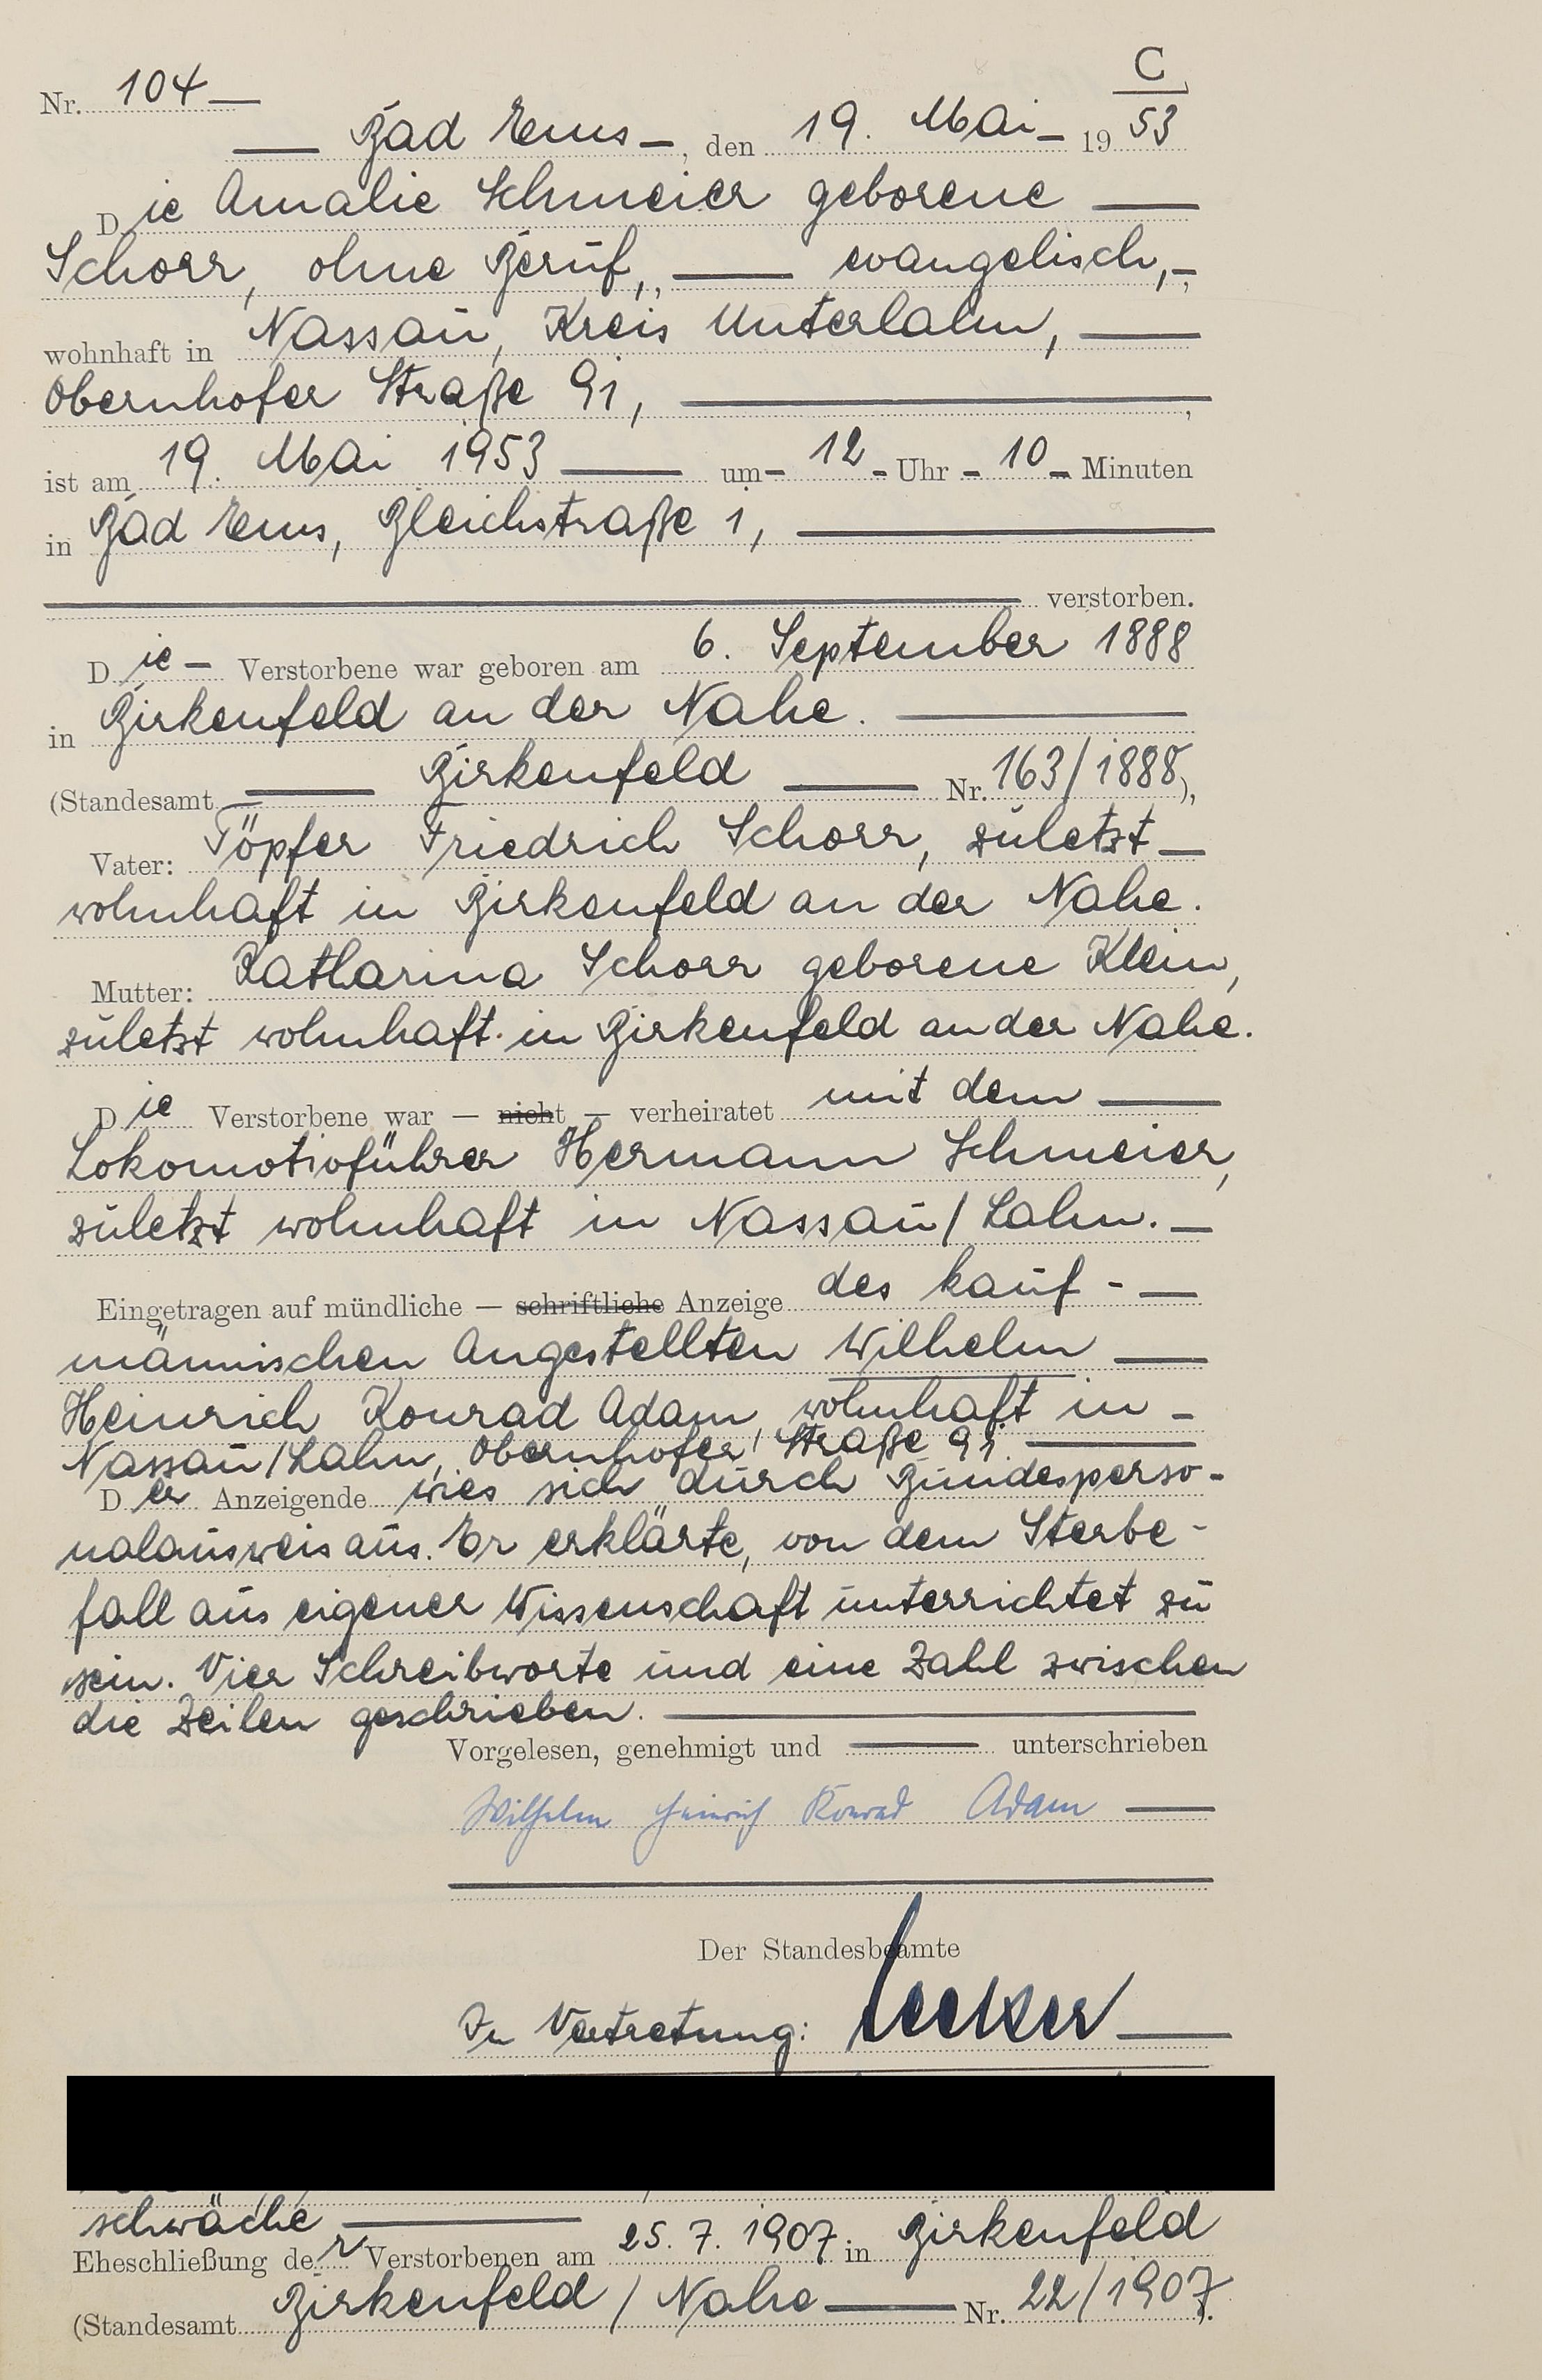 C
Nr. 104
Bad Ems, den 19. Mai 1953
Die Amalie Schmeier geborene
Schorr, ohne Beruf, evangelisch,
wohnhaft in Nassau, Kreis Unterlahn,
Obernhofer Straße 91,
ist am 19. Mai 1953 um 12 Uhr 10 Minuten
in Bad Ems, Bleichstraße 1,
verstorben.
Die Verstorbene war geboren am 6. September 1888
in Birkenfeld an der Nahe.
(Standesamt Birkenfeld Nr. 163/1888),
Vater: Töpfer Friedrich Schorr, zuletzt
wohnhaft in Birkenfeld an der Nahe.
Mutter: Katharina Schorr geborene Klein,
zuletzt wohnhaft in Birkenfeld an der Nahe.
Die Verstorbene war — nicht — verheiratet mit dem
Lokomotivführer Hermann Schmeier,
zuletzt wohnhaft in Nassau/Lahn.
Eingetragen auf mündliche — schriftliche Anzeige des kauf-
männischen Angestellten Wilhelm
Heinrich Konrad Adam, wohnhaft in
Nassau/Lahn, Obernhofer Straße 91.
Der Anzeigende wies sich durch Bundesperso-
nalausweis aus. Er erklärte, von dem Sterbe-
fall aus eigener Wissenschaft unterrichtet zu
sein. Vier Schreibworte und eine Zahl zwischen
die Zeilen geschrieben.
Vorgelesen, genehmigt und unterschrieben
Wilhelm Heinrich Konrad Adam
Der Standesbeamte
In Vertretung:
schwäche
Eheschließung der Verstorbenen am 25. 7. 1907 in Birkenfeld
(Standesamt Birkenfeld / Nahe Nr. 22/1907).